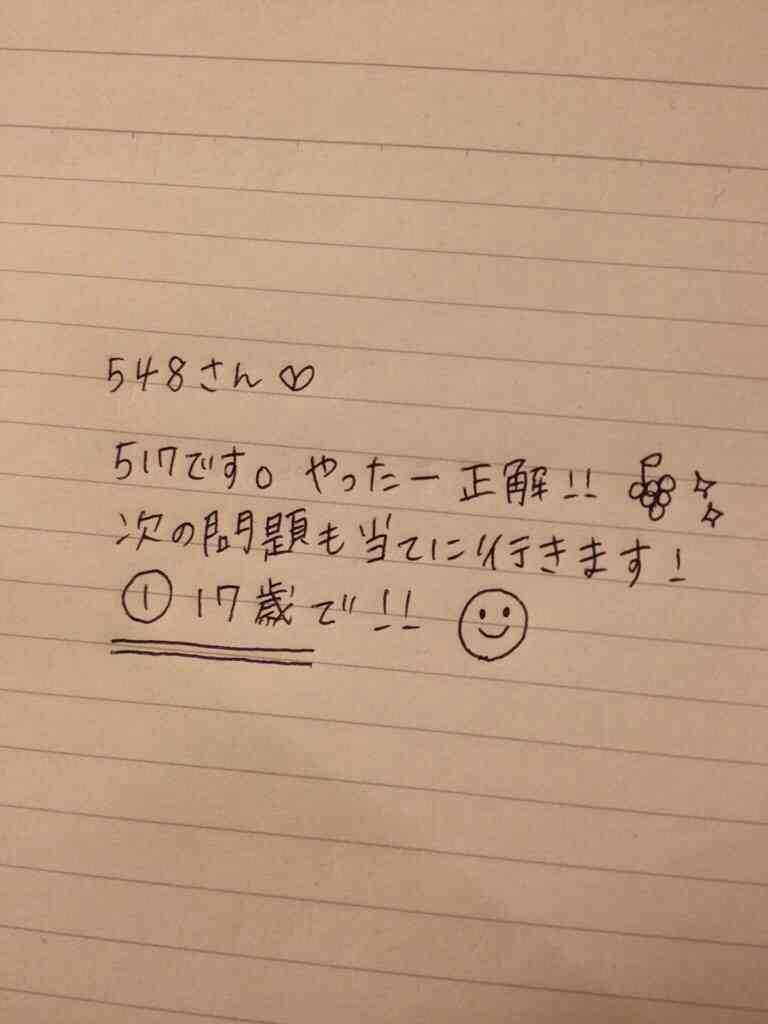 548さん♡
517です。やったー正解!!
次の問題も当てに行きます!
① 17歳で!!